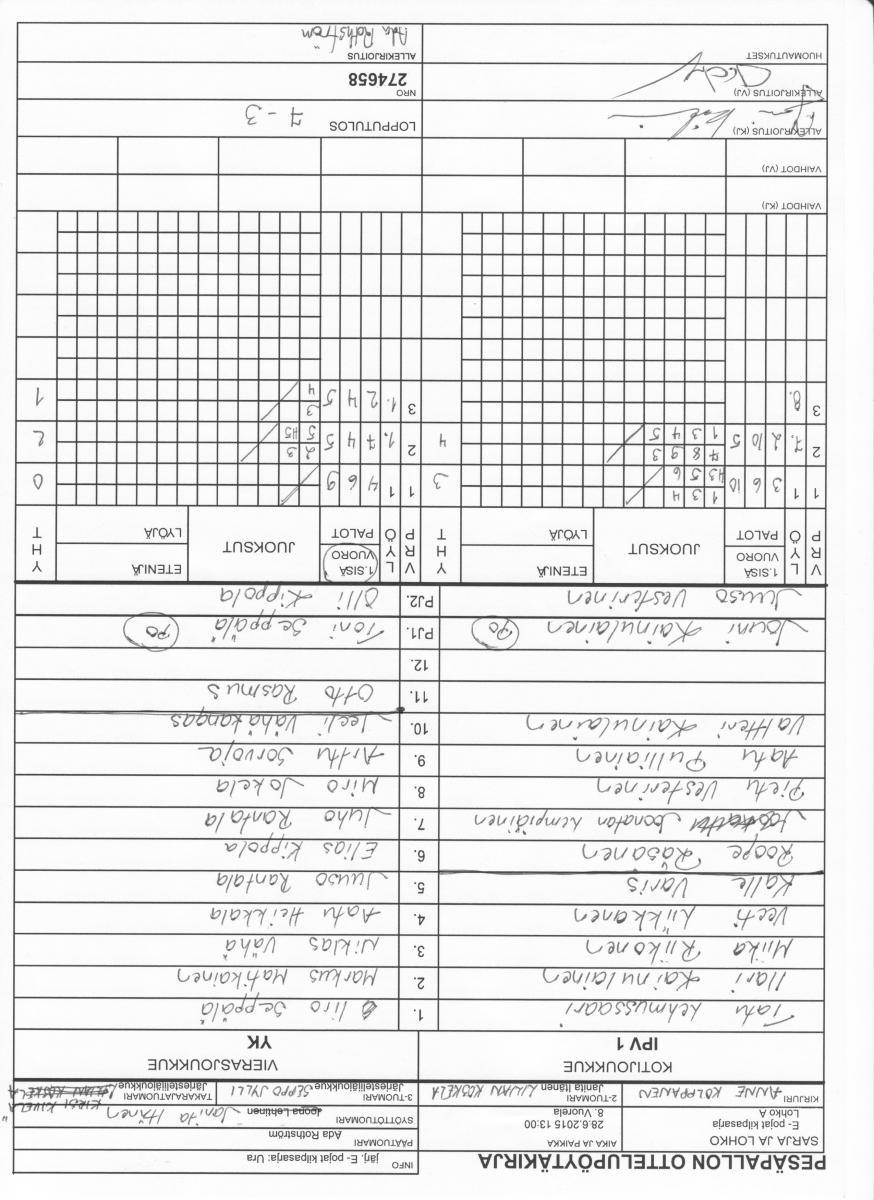 PESÄPALLON OTTELUPÖYTÄKIRJA
INFO
järj. E- pojat kilpasarja: Ura:
SARJA JA LOHKO
E- pojat kilpasarja
Lohko A
AIKA JA PAIKKA
28.6.2015 13:00
8. Vuorela
PÄÄTUOMARI
Ada Rothström
SYÖTTÖTUOMARI
Joona Lehtinen Janita Itänen
KIRJURI
ANNE KOLPPANEN
2-TUOMARI
Janita Itänen LIJAN KOSKELA
3-TUOMARI
Järjestelijäjoukkue SEPPO JYLLI
TAKARAJATUOMARI
Järjestelijäjoukkue
KIRSI KIVELÄ
KOTIJOUKKUE
IPV 1
VIERASJOUKKUE
YK
Tatu Lehmussaari 1. Iiro Seppälä
Ilari Kainulainen 2. Markus Matikainen
Miika Riikonen 3. Niklas Vähä
Veeti Liikkanen 4. Aatu Heikkala
Kalle Varis 5. Juuso Rantala
Roope Räsänen 6. Elias Kippola
Joonatan Kempiäinen 7. Juho Rantala
Pietu Vesterinen 8. Miro Jokela
Aatu Pulliainen 9. Arttu Sorvoja
Valtteri Kainulainen 10. Jeeli Vähäkangas
11. Otto Rasmus
12.
Jouni Kainulainen PO PJ1. Toni Seppälä PO
Juuso Vesterinen PJ2. Olli Kippola
P R V L Y Ö 1.SISÄ VUORO PALOT JUOKSUT ETENIJÄ LYÖJÄ Y H T P R V L Y Ö 1.SISÄ VUORO PALOT JUOKSUT ETENIJÄ LYÖJÄ Y H T
1 1 3 6 10 1 3 4 3 1 1 4 6 9 0
5 6
2 7. 2 10 5 7 8 9 3 4 2 1. 7 4 5 2 3 2
1 3 4 5 5
3 8. 3 1. 2 4 5 3 1
4
VAIHDOT (KJ)
VAIHDOT (VJ)
ALLEKIRJOITUS (KJ)
LOPPUTULOS 7 - 3
ALLEKIRJOITUS (VJ)
NRO
274658
HUOMAUTUKSET
ALLEKIRJOITUS
Ada Rothström